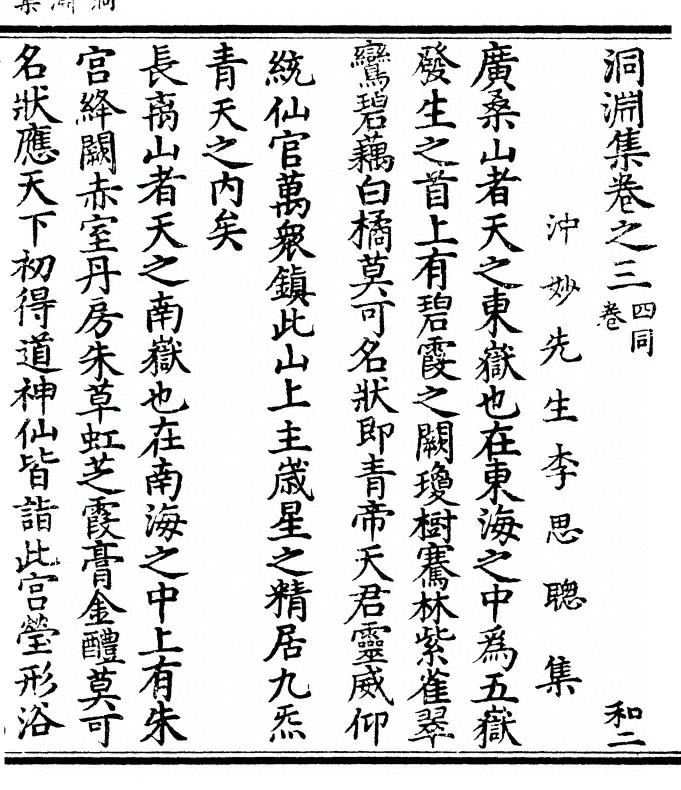 洞淵集卷之三 四同卷 和二
沖妙先生李思聰集
廣桑山者天之東嶽也在東海之中爲五嶽
發生之首上有碧霞之闕瓊樹騫林紫雀翠
鸞碧藕白橘莫可名狀即青帝天君靈威仰
統仙官萬衆鎮此山上主歲星之精居九炁
青天之内矣
長离山者天之南嶽也在南海之中上有朱
宮絳闕赤室丹房朱草虹芝霞膏金醴莫可
名狀應天下初得道神仙皆詣此宮瑩形浴